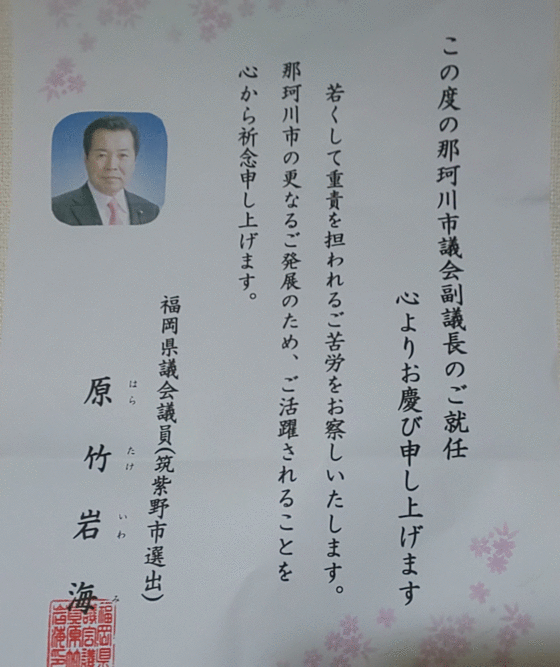 この度の那珂川市議会副議長のご就任
心よりお慶び申し上げます
若くして重責を担われるご苦労をお察しいたします。
那珂川市の更なるご発展のため、ご活躍されることを
心から祈念申し上げます。
福岡県議会議員(筑紫野市選出)
原竹岩海
はらたけいわみ